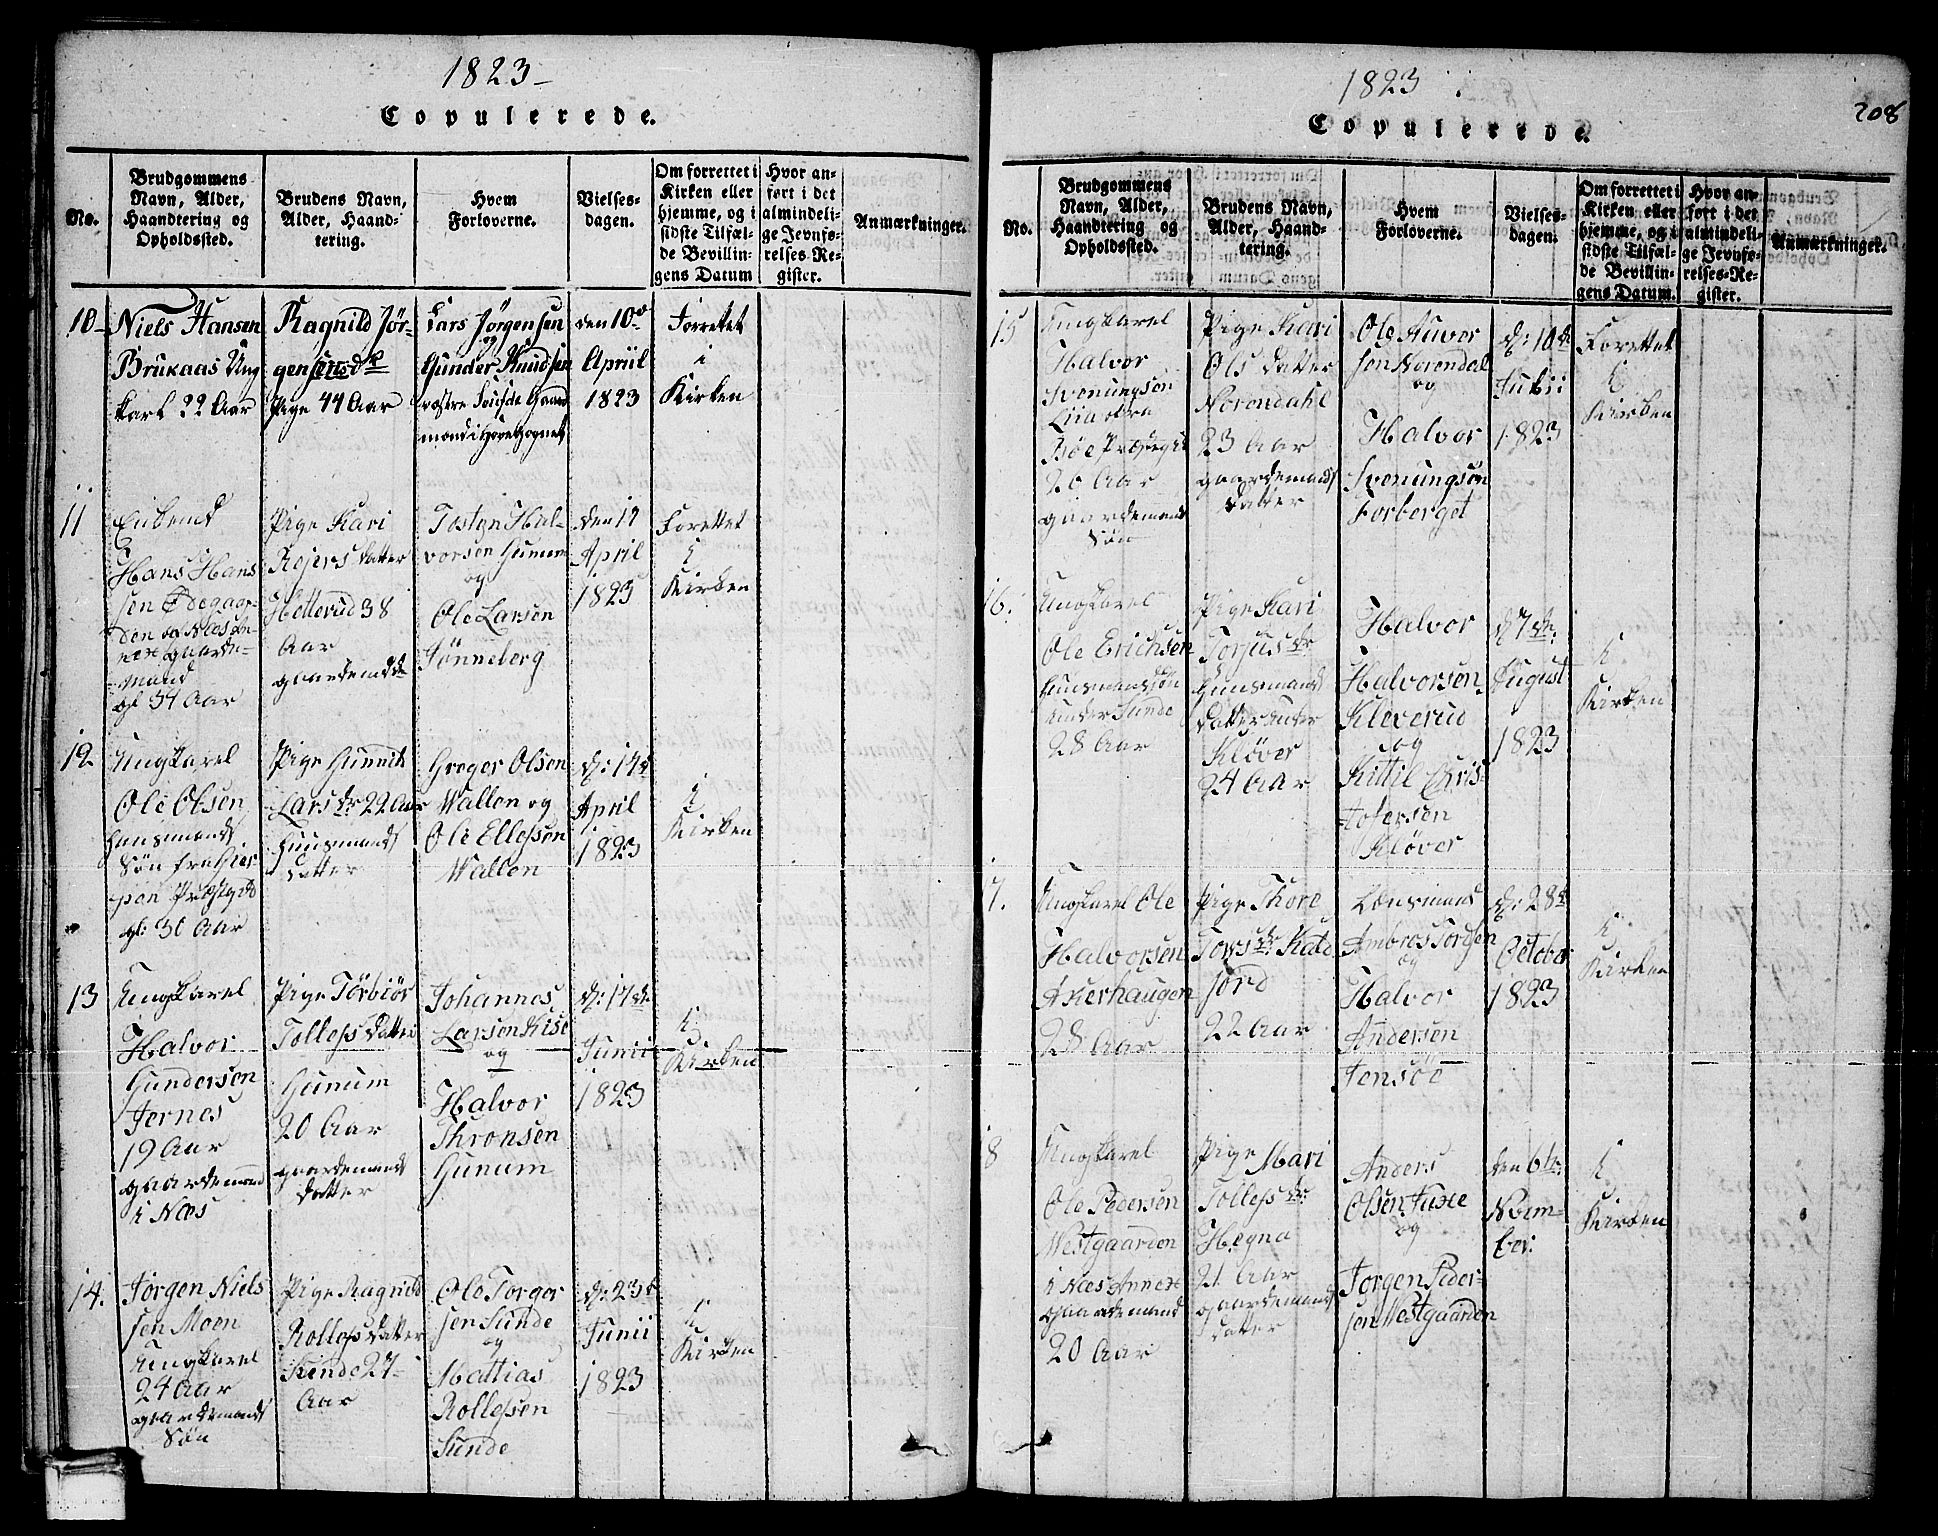 1823
Copulerede.
No.
Brudgommens
Navn, Alder,
Haandtering og
Opholdssted.
Brudens Navn,
Alder, Haand-
tering.
Hvem
Forloverne.
Vielses-
dagen.
Om forrettet i
Kirken eller
hjemme, og i
sidste Tilfæl-
de Bevillin-
gens Datum
Hvor an-
ført i det
almindeli-
ge Jevnfø-
relses-Re-
gister.
Anmærkninger.
10
Niels Hansen
Brukaas Ung
karl 22 Aar
Ragnild Jør-
gensens
Pige 44 Aar
Lars Jørgensen
og
Gunder Knudsen
den 10
Apriil
1823
Forrettet
i
Kirken
11
Hans Hans
sen
mand
gl 34 Aar
Pige Kari
Rejers datter
Hetterud 38
Aar
Tosten Hal-
vorsen Hunum
og
Ole Larsen
Tønneberg
den 17
April
1823
Forettet
i
Kirken
12
Ungkarel
Ole Olsen
Huusmands
Søn fra Hier
pen Præstgld
gl: 30 Aar
Pige Gunnild
Lars dr 22 Aar
Huusmands
datter
Greger Olsen
Wallen og
Ole Ellefssen
Wallen
d: 17de
April
1823
i
Kirken
13
Ungkarel
Halvor
Gundersen
Jernes
19 Aar
gaardemand
i Næs
Pige Torbiør
Tollefs datter
Hunum
20 Aar
gaardemands
datter
Johannes
Larsen Kise
og
Halvor
Thronsen
Hunum
d: 17de
Junii
1823
i
Kirken
14.
Jørgen Niels
sen Moen
Ungkarel
24 Aar
gaardemands
Søn
Pige Ragnild
Rollefs datter
Sunde 27
Aar
Ole Torger
sen Sunde
og
Mattias
Rollefsen
Sunde
d: 23de
Junii
1823
i
Kirken
1823
208
Copulerede.
No.
Brudgommens
Navn, Alder,
Haandtering og
Opholdssted.
Brudens Navn,
Alder, Haand-
tering.
Hvem
Forloverne.
Vielses-
dagen.
Om forrettet i
Kirken eller
hjemme, og i
sidste Tilfæl-
de Bevillin-
gens Datum.
Hvor an-
ført i det
almindeli-
ge Jevnfø-
relses-Re-
gister.
Anmærkninger.
15
Ungkarel
Halvor
Svenungsøn
Bøe Præstegield
26 Aar
gaardemands
Søn
Pige Kari
Ols datter
Norendahl
23 Aar
gaardemands
datter
Ole Auver
sen Norendal
og
Halvor
Svenungsøn
Forberget
d: 10de
Julii
1823
Forettet
i
Kirken
16.
Ungkarel
Ole Erichsen
Huusmandssøn
under Sunde
28 Aar
Pige Kari
Torjus dr
Huusmands
datter under
Kløver
24 Aar
Halvor
Halvorsen
Kleverud
og
Kittil Chris-
tofersen
Kløver
d 7de
August
1823
i
Kirken
17.
Ungkarel Ole
Halvorsen
Akerhaugen
28 Aar
Pige Thore
Tovs dr Hate
jord
22 Aar
Lænsmand
Ambros Tordsen
og
Halvor
Andersen
Jensøe
d: 28de
October
1823
i
Kirken
18
Ungkarel
Ole Pedersen
Westgaarden
i Næs Annex
gaardemand
20 Aar
Pige Mari
Tollefs dr
Hegna
21 Aar
gaardemands
datter
Anders
Olsen Juxe
og
Jørgen Peder-
sen Westgaarden
den 6te
Novem-
ber:
i
Kirken